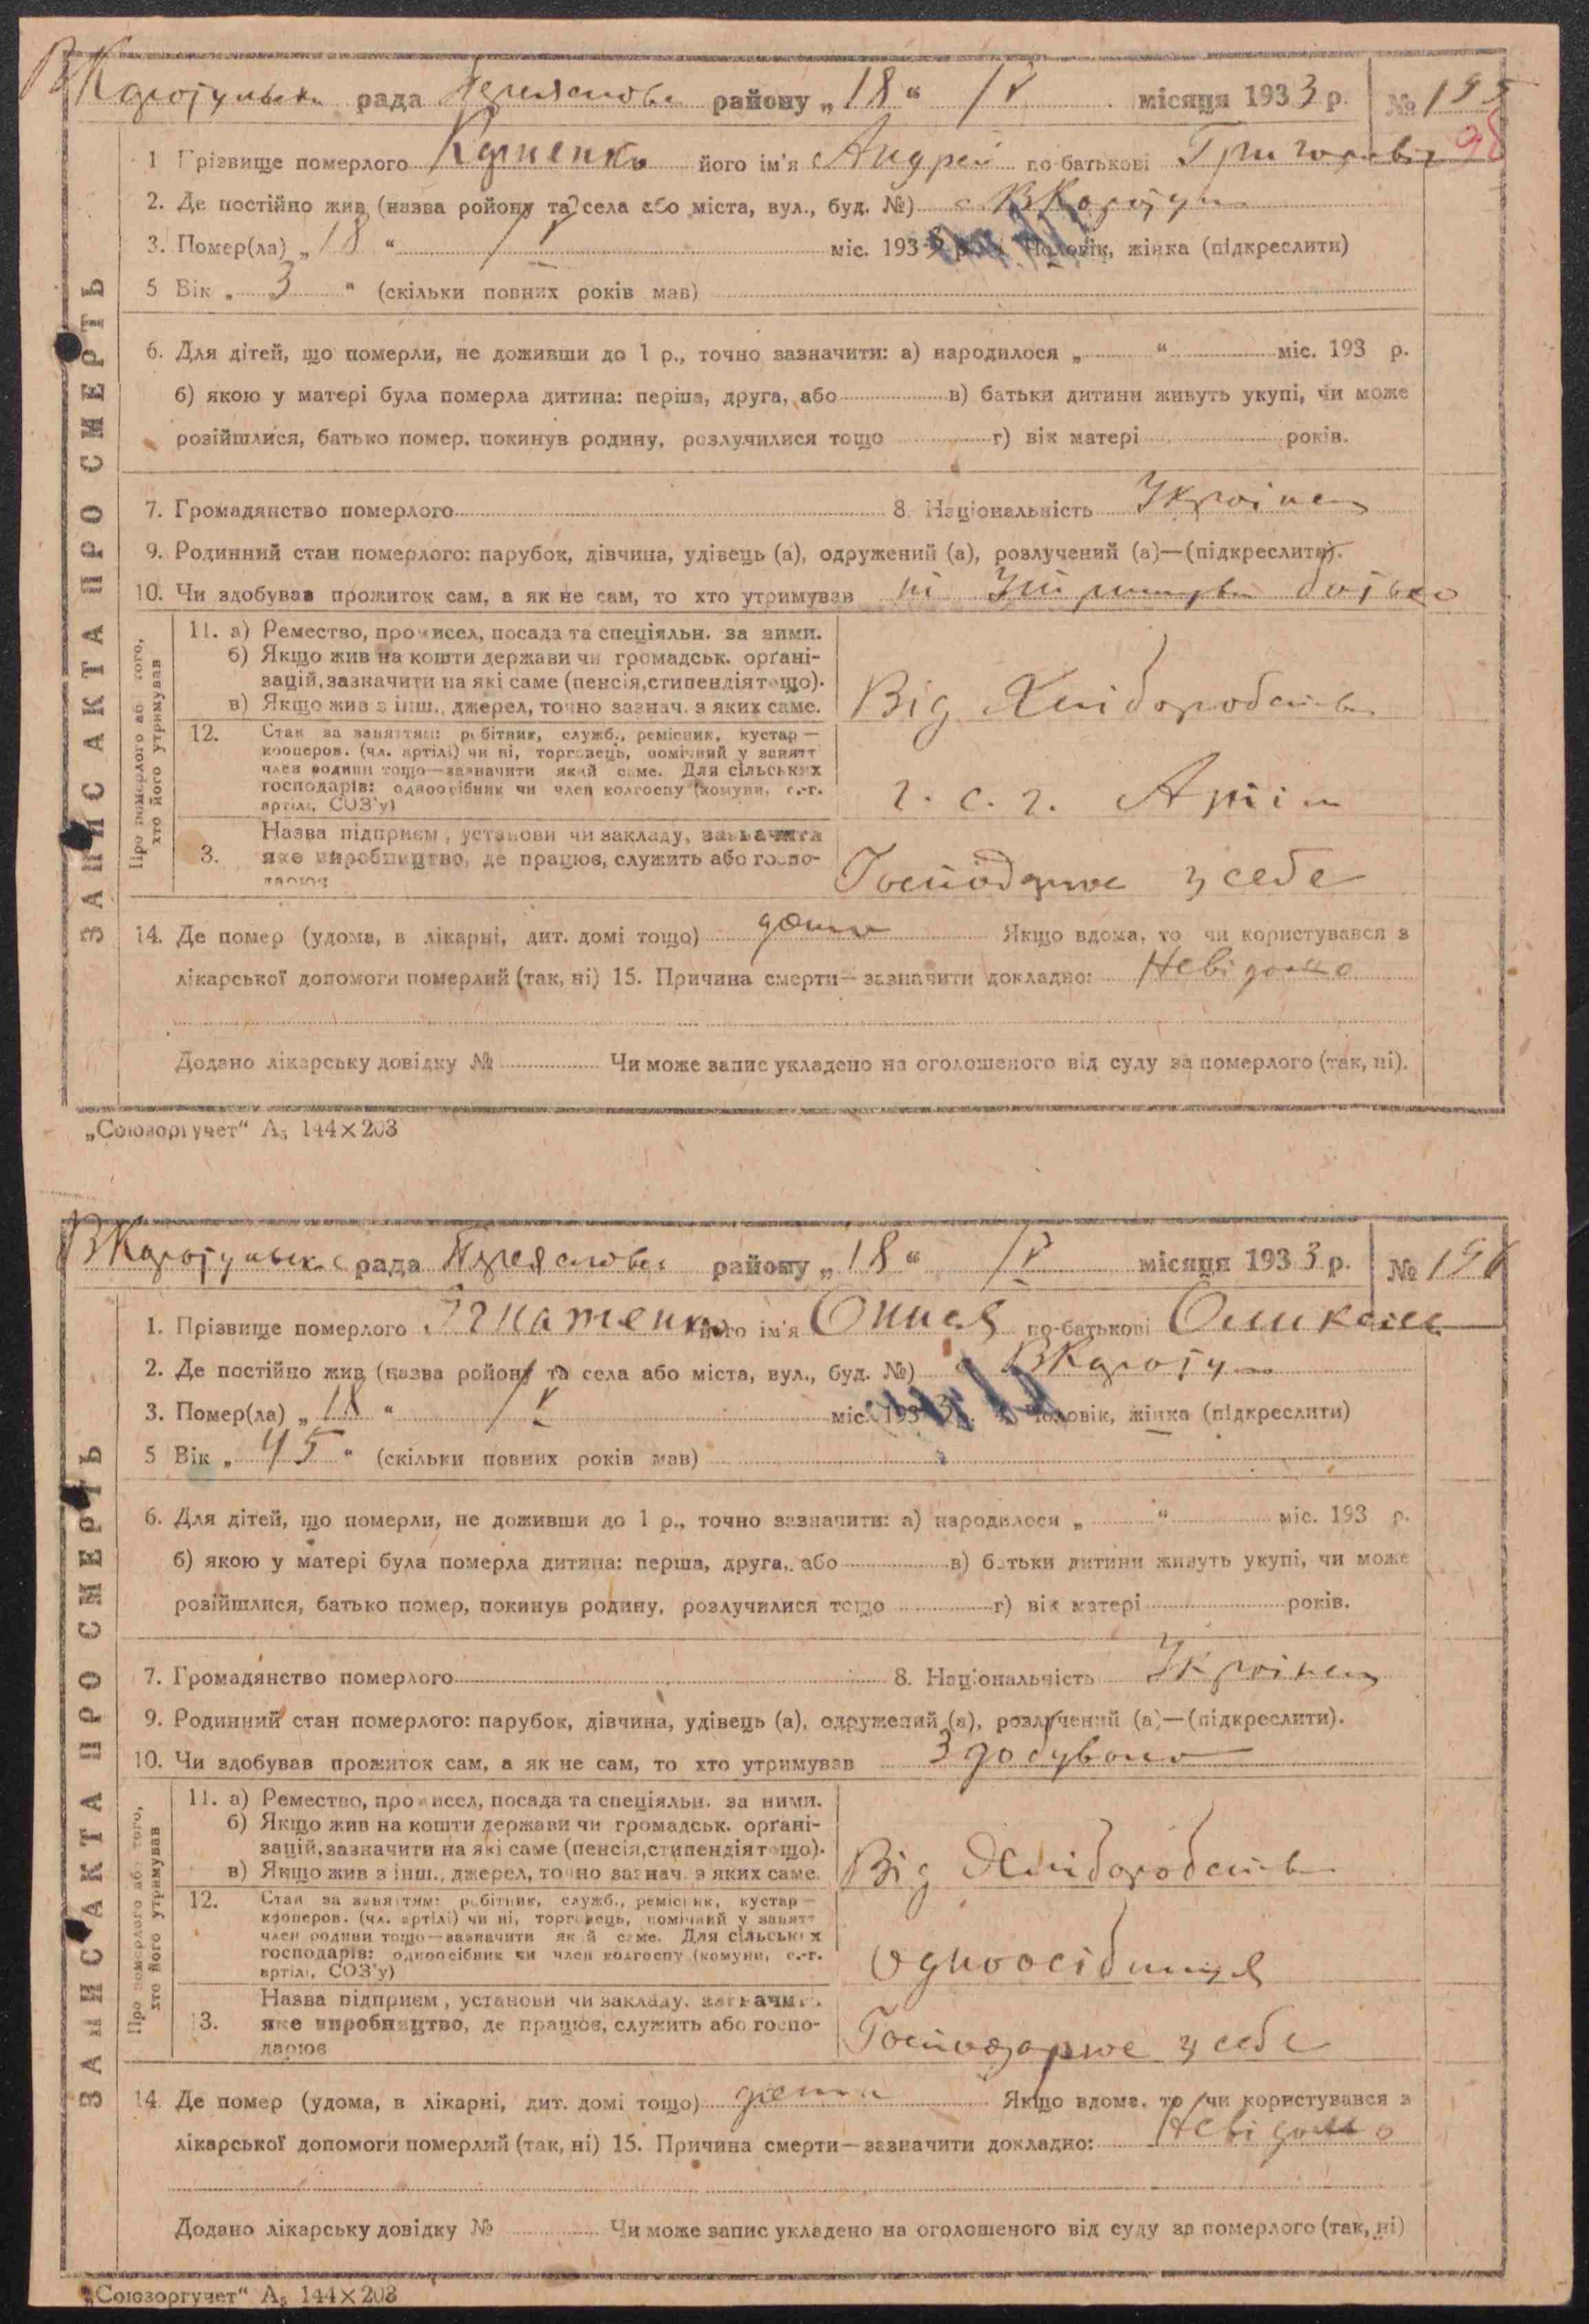 ВКаратульська рада Переяславськ району „18“ IV місяця 1933 р. № 195
98
ЗАПИС АКТА ПРО СМЕРТЬ
1 Прізвище померлого його ім'я Андрей по-батькові Григорович
2. Де постійно жив (назва ройону та села або міста, вул., буд. №) с ВКаратул
3. Помер(ла) „18“ IV міс. 193 Чоловік, жінка (підкреслити)
5 Вік „3“ (скільки повних років мав)
6. Для дітей, що померли, не доживши до 1 р., точно зазначити: а) народилося „ “ міс. 193 р.
б) якою у матері була померла дитина: перша, друга, або в) батьки дитини живуть укупі, чи може
розійшлися, батько помер, покинув родину, розлучилися тощо г) вік матері років.
7. Громадянство померлого 8. Національність Українец
9. Родинний стан померлого: парубок, дівчина, удівець (а), одружений (а), розлучений (а)—(підкреслити).
10. Чи здобував прожиток сам, а як не сам, то хто утримував ні батько
Про померлого або того, хто його утримував
11. а) Ремество, промисел, посада та спеціяльн. за ними.
б) Якщо жив на кошти держави чи громадськ. орґані-
зацій, зазначити на які саме (пенсія, стипендія тощо).
в) Якщо жив з інш., джерел, точно зазнач. з яких саме.
Від Хліборобства
12. Стан за заняттям: робітник, служб., ремісник, кустар—
кооперов. (чл. артілі) чи ні, торговець, помічний у занятт
член родини тощо—зазначити який саме. Для сільських
господарів: одноосібник чи член колгоспу (комуни, с.-г.
артілі, СОЗ'у)
г. с. г. Артіл
3. Назва підприєм, установи чи закладу, зазначити
яке виробництво, де працює, служить або госпо-
дарює
Господарює у себе
14. Де помер (удома, в лікарні, дит. домі тощо) дома Якщо вдома, то чи користувався з
лікарської допомоги померлий (так, ні) 15. Причина смерти—зазначити докладно: Невідомо
Додано лікарську довідку № Чи може запис укладено на оголошеного від суду за померлого (так, ні).
„Союзоргучет“ А₅ 144×203
ВКаратульська рада Переяславськ району „18“ IV місяця 1933 р. № 196
ЗАПИС АКТА ПРО СМЕРТЬ
1. Прізвище померлого Ігнатенко його ім'я по-батькові
2. Де постійно жив (назва ройону та села або міста, вул., буд. №) с ВКаратул
3. Помер(ла) „18“ IV міс. 193 Чоловік, жінка (підкреслити)
5 Вік „45“ (скільки повних років мав)
6. Для дітей, що померли, не доживши до 1 р., точно зазначити: а) народилося „ “ міс. 193 р.
б) якою у матері була померла дитина: перша, друга, або в) батьки дитини живуть укупі, чи може
розійшлися, батько помер, покинув родину, розлучилися тощо г) вік матері років.
7. Громадянство померлого 8. Національність Українец
9. Родинний стан померлого: парубок, дівчина, удівець (а), одружений (а), розлучений (а)—(підкреслити).
10. Чи здобував прожиток сам, а як не сам, то хто утримував Здобувала
Про померлого або того, хто його утримував
11. а) Ремество, промисел, посада та спеціяльн. за ними.
б) Якщо жив на кошти держави чи громадськ. орґані-
зацій, зазначити на які саме (пенсія, стипендія тощо).
в) Якщо жив з інш., джерел, точно зазнач. з яких саме.
Від Хліборобства
12. Стан за заняттям: робітник, служб., ремісник, кустар—
кооперов. (чл. артілі) чи ні, торговець, помічний у занятт
член родини тощо—зазначити який саме. Для сільських
господарів: одноосібник чи член колгоспу (комуни, с.-г.
артілі, СОЗ'у)
Одноосібниця
13. Назва підприєм, установи чи закладу, зазначити
яке виробництво, де працює, служить або госпо-
дарює
Господарює у себе
14 Де помер (удома, в лікарні, дит. домі тощо) дома Якщо вдома, то чи користувався з
лікарської допомоги померлий (так, ні) 15. Причина смерти—зазначити докладно: Невідомо
Додано лікарську довідку № Чи може запис укладено на оголошеного від суду за померлого (так, ні)
„Союзоргучет“ А₅ 144×203